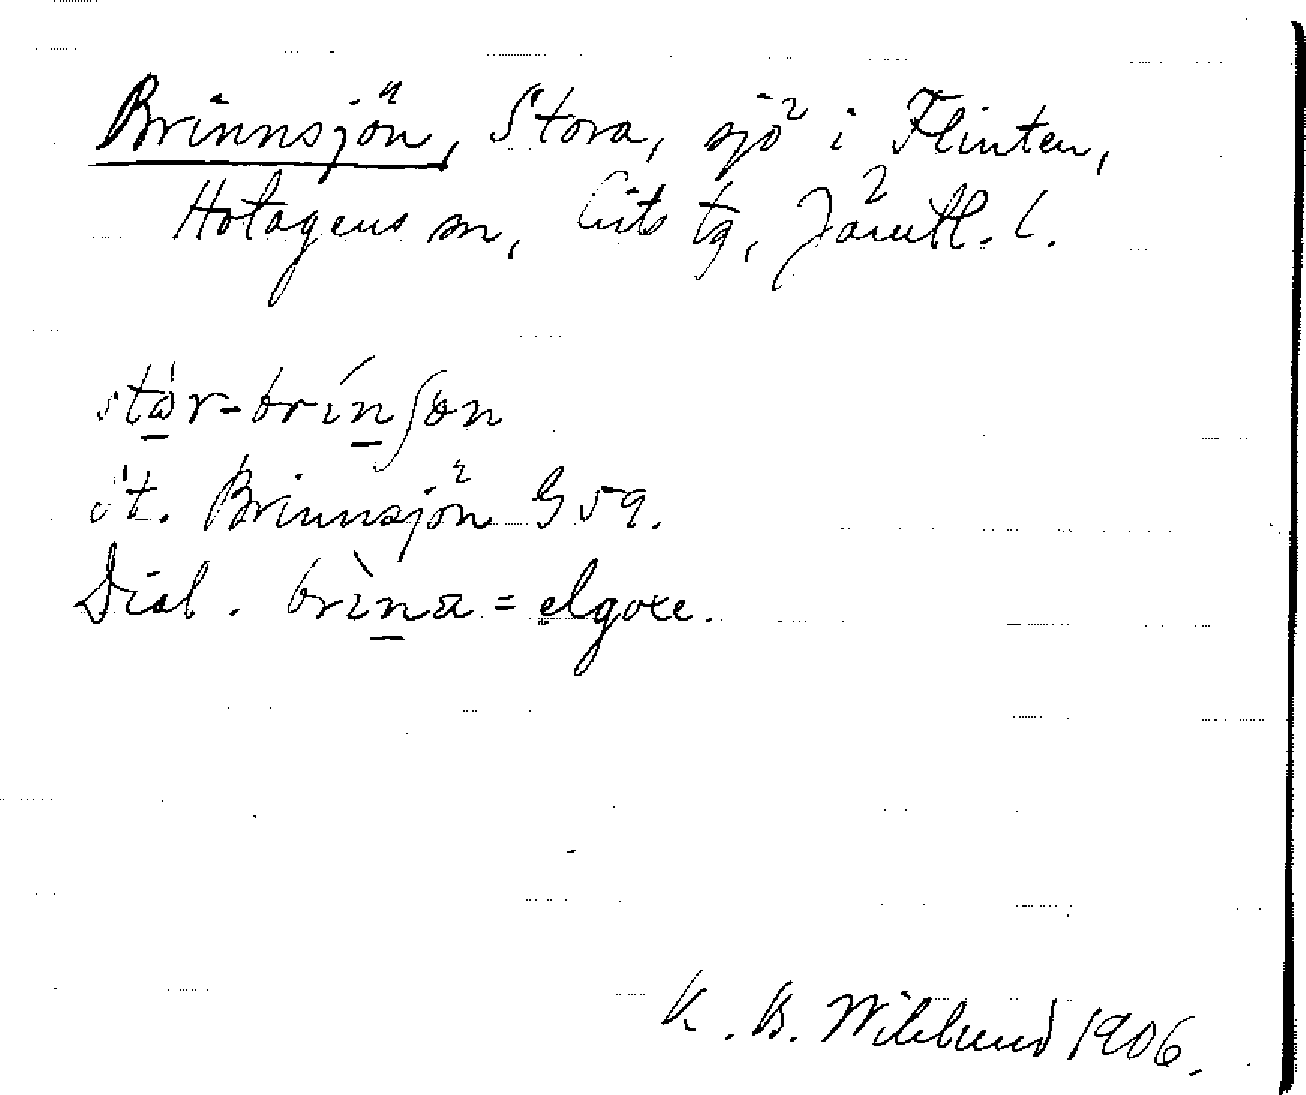 Brinnsjön, Stora, sjö i Flinten,
Hotagens sn, Lits tg, Jämtl. l.
stɷ̀r-brínʃɵn
St. Brinnsjön G 59.
Dial. brìna = elgoxe.
K. B. Wiklund 1906.